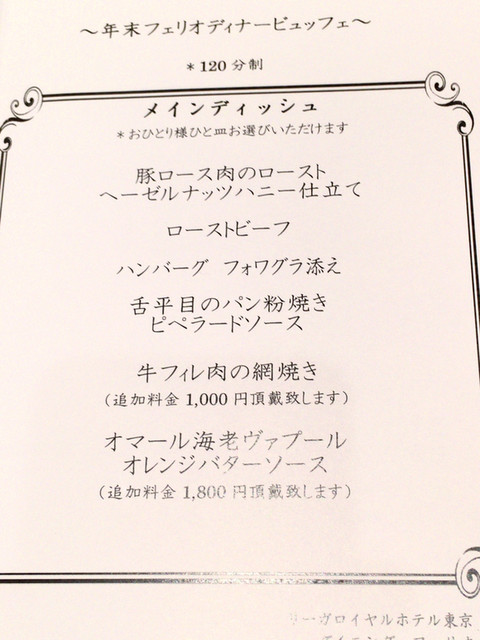 ～年末フェリオディナービュッフェ～
＊120分制
メインディッシュ
＊おひとり様ひと皿お選びいただけます
豚ロース肉のロースト
ヘーゼルナッツハニー仕立て
ローストビーフ
ハンバーグ フォワグラ添え
舌平目のパン粉焼き
ピペラードソース
牛フィレ肉の網焼き
（追加料金 1,000 円頂戴致します）
オマール海老ヴァプール
オレンジバターソース
（追加料金 1,800 円頂戴致します）
リーガロイヤルホテル東京